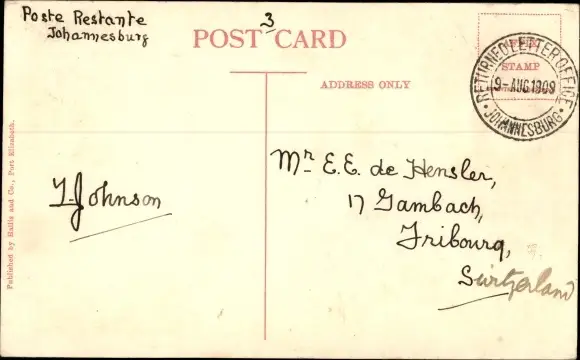 Poste Restante
Johannesburg
3
POST CARD
AFFIX
STAMP
RETURNED LETTER OFFICE
9-AUG 1909
JOHANNESBURG
ADDRESS ONLY
Mr E. E. de Hensler,
17 Gambach,
Fribourg,
Switzerland
Johnson
Published by Hallis and Co., Port Elizabeth.